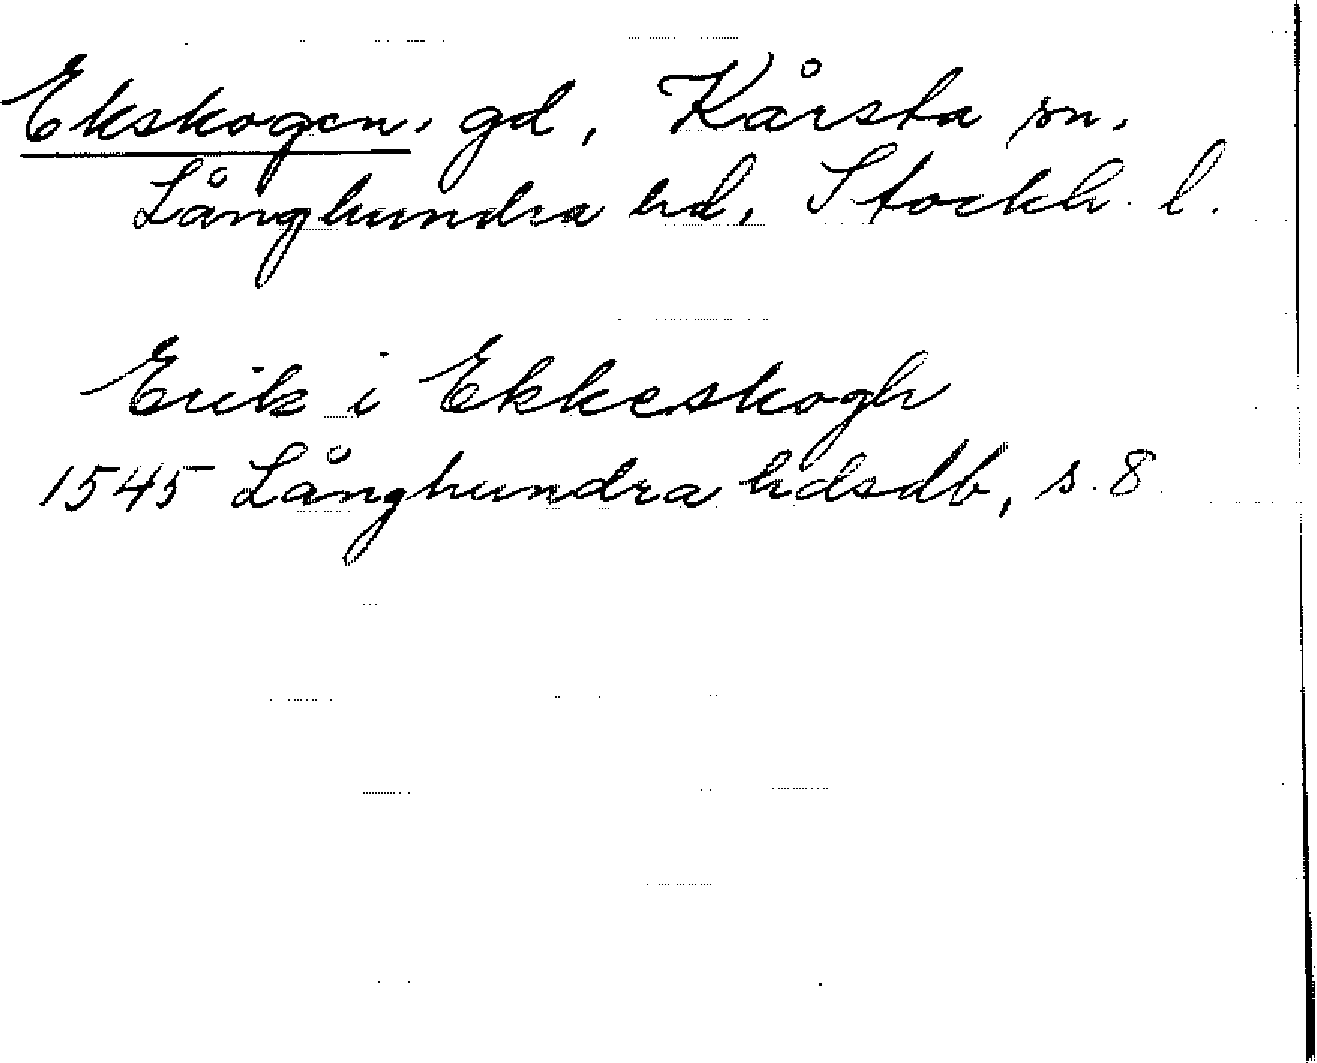 Ekskogen, gd, Kårsta sn.
Långhundra hd, Stockh. l.
Erik i Ekkeskogh
1545 Långhundra hdsdb, s. 8